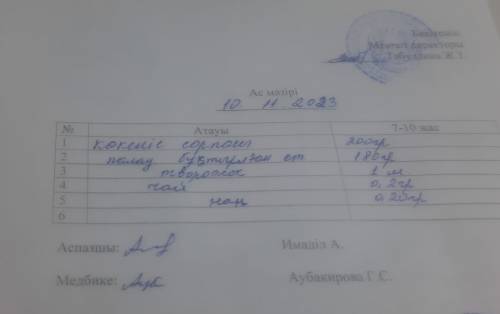 Бекітемін:
Мектеп директоры
Габдуллина Ж.Т.
Ас мәзірі
10. 11. 2023
№ Атауы 7-10 жас
1 Көкөніс сорпасы 200гр
2 палау бұқтырылған ет 180гр
3 творожок 1 м
4 чай 0,2гр
5 нан 0,20гр
6
Аспазшы: Имаділ А.
Медбике: Аубакирова Г.С.